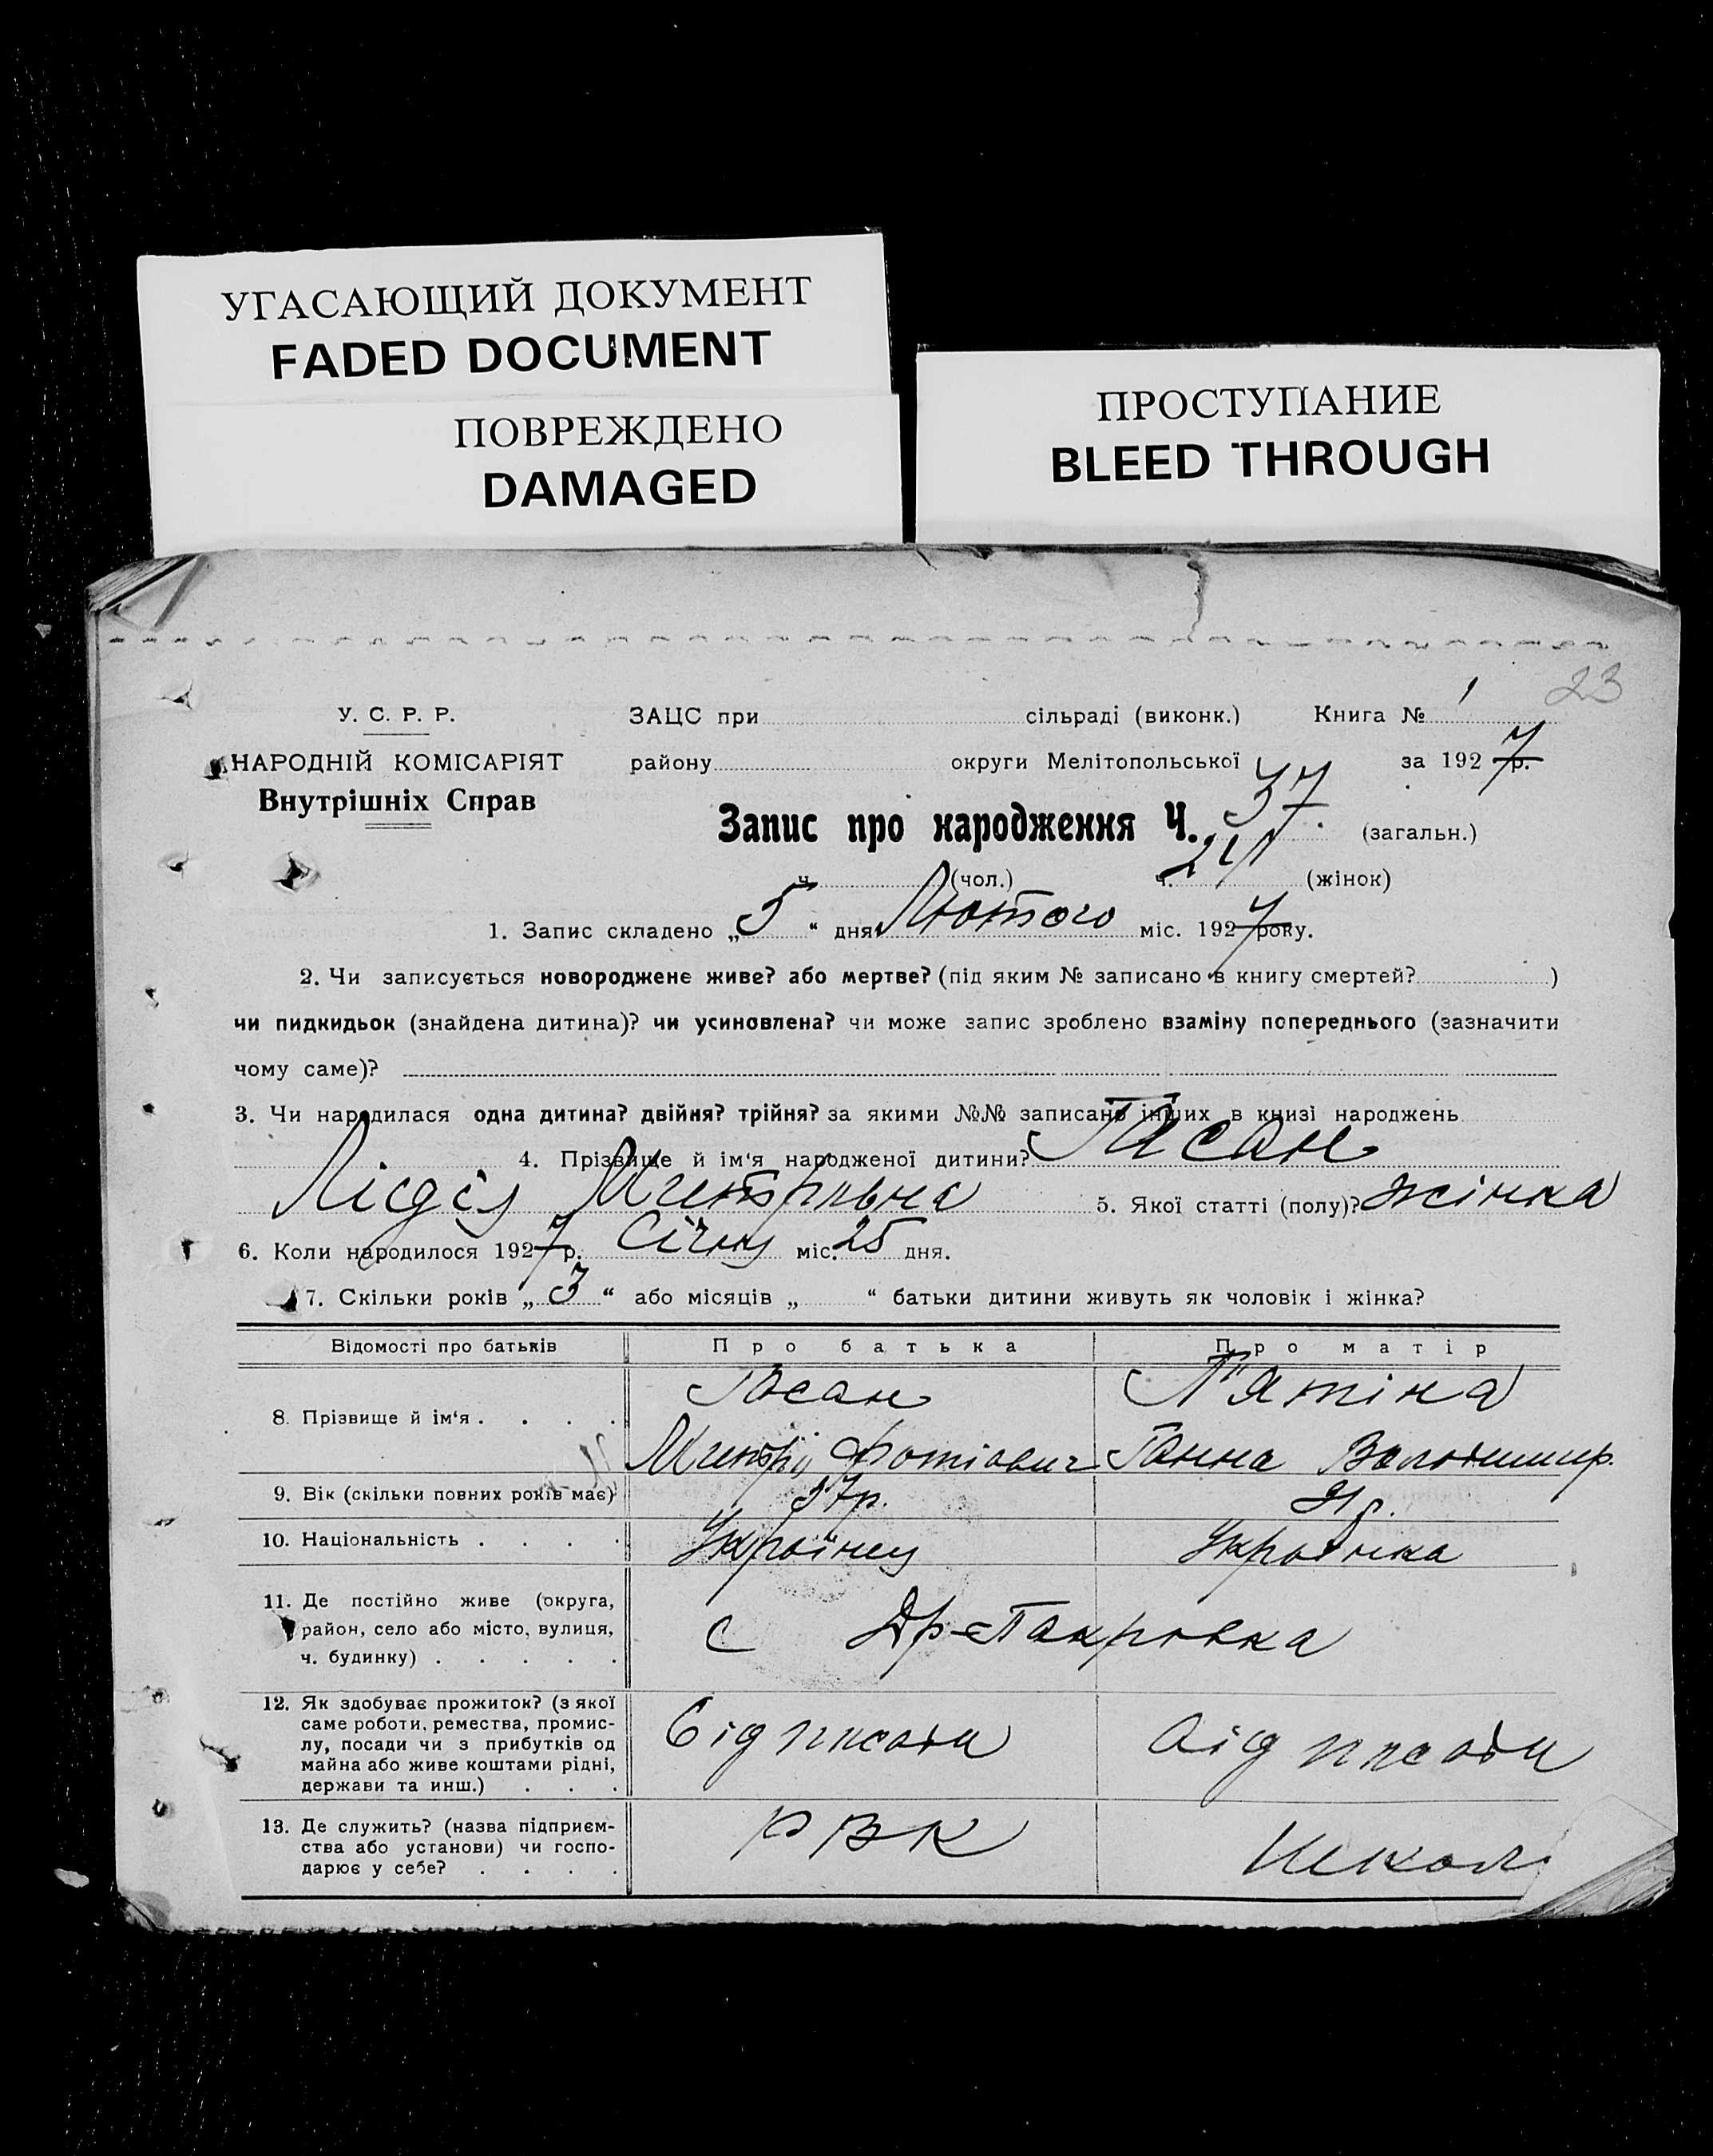 УГАСАЮЩИЙ ДОКУМЕНТ
FADED DOCUMENT
ПОВРЕЖДЕНО
DAMAGED
ПРОСТУПАНИЕ
BLEED THROUGH
23
У. С. Р. Р.
НАРОДНІЙ КОМІСАРІЯТ
Внутрішніх Справ
ЗАЦС при сільраді (виконк.) Книга № 1
району округи Мелітопольської за 1927 р.
Запис про народження Ч. 37 (загальн.)
ч. (чол.) ч. 21 (жінок)
1. Запис складено „5“ дня Лютого міс. 1927 року.
2. Чи записується новороджене живе? або мертве? (під яким № записано в книгу смертей? )
чи пидкидьок (знайдена дитина)? чи усиновлена? чи може запис зроблено взаміну попереднього (зазначити
чому саме)?
3. Чи народилася одна дитина? двійня? трійня? за якими №№ записано інших в книзі народжень
4. Прізвище й ім‘я народженої дитини? Гасан
Лідія Митрівна 5. Якої статті (полу)? жінка
6. Коли народилося 1927 р. Січня міс. 25 дня.
7. Скільки років „3“ або місяців „ “ батьки дитини живуть як чоловік і жінка?
Відомості про батьків Про батька Про матір
8. Прізвище й ім‘я . . . .
Гасан
Митрій Фотіович
П'ятіна
Ганна Володимир.
9. Вік (скільки повних років має) 37р. р.
10. Національність . . . . Українец Українка
11. Де постійно живе (округа,
район, село або місто, вулиця,
ч. будинку) . . . . .
с Др-Покровка
12. Як здобуває прожиток? (з якої
саме роботи, ремества, промис-
лу, посади чи з прибутків од
майна або живе коштами рідні,
держави та инш.) . . .
від посади від посади
13. Де служить? (назва підприєм-
ства або установи) чи госпо-
дарює у себе? . . . .
РВК Школ